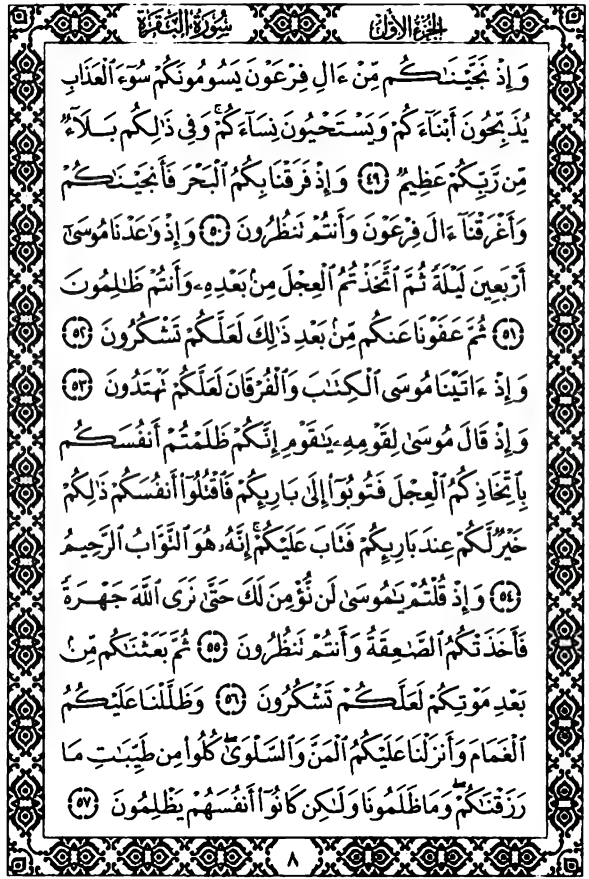 الجزء الأول سورة البقرة
وَإِذْ نَجَّيْنَٰكُم مِّنْ ءَالِ فِرْعَوْنَ يَسُومُونَكُمْ سُوٓءَ ٱلْعَذَابِ
يُذَبِّحُونَ أَبْنَآءَكُمْ وَيَسْتَحْيُونَ نِسَآءَكُمْ ۚ وَفِى ذَٰلِكُم بَلَآءٌ
مِّن رَّبِّكُمْ عَظِيمٌ ﴿٤٩﴾ وَإِذْ فَرَقْنَا بِكُمُ ٱلْبَحْرَ فَأَنجَيْنَٰكُمْ
وَأَغْرَقْنَآ ءَالَ فِرْعَوْنَ وَأَنتُمْ تَنظُرُونَ ﴿٥٠﴾ وَإِذْ وَٰعَدْنَا مُوسَىٰٓ
أَرْبَعِينَ لَيْلَةً ثُمَّ ٱتَّخَذْتُمُ ٱلْعِجْلَ مِنۢ بَعْدِهِۦ وَأَنتُمْ ظَٰلِمُونَ
﴿٥١﴾ ثُمَّ عَفَوْنَا عَنكُم مِّنۢ بَعْدِ ذَٰلِكَ لَعَلَّكُمْ تَشْكُرُونَ ﴿٥٢﴾
وَإِذْ ءَاتَيْنَا مُوسَى ٱلْكِتَٰبَ وَٱلْفُرْقَانَ لَعَلَّكُمْ تَهْتَدُونَ ﴿٥٣﴾
وَإِذْ قَالَ مُوسَىٰ لِقَوْمِهِۦ يَٰقَوْمِ إِنَّكُمْ ظَلَمْتُمْ أَنفُسَكُم
بِٱتِّخَاذِكُمُ ٱلْعِجْلَ فَتُوبُوٓا۟ إِلَىٰ بَارِئِكُمْ فَٱقْتُلُوٓا۟ أَنفُسَكُمْ ذَٰلِكُمْ
خَيْرٌ لَّكُمْ عِندَ بَارِئِكُمْ فَتَابَ عَلَيْكُمْ ۚ إِنَّهُۥ هُوَ ٱلتَّوَّابُ ٱلرَّحِيمُ
﴿٥٤﴾ وَإِذْ قُلْتُمْ يَٰمُوسَىٰ لَن نُّؤْمِنَ لَكَ حَتَّىٰ نَرَى ٱللَّهَ جَهْرَةً
فَأَخَذَتْكُمُ ٱلصَّٰعِقَةُ وَأَنتُمْ تَنظُرُونَ ﴿٥٥﴾ ثُمَّ بَعَثْنَٰكُم مِّنۢ
بَعْدِ مَوْتِكُمْ لَعَلَّكُمْ تَشْكُرُونَ ﴿٥٦﴾ وَظَلَّلْنَا عَلَيْكُمُ
ٱلْغَمَامَ وَأَنزَلْنَا عَلَيْكُمُ ٱلْمَنَّ وَٱلسَّلْوَىٰ ۖ كُلُوا۟ مِن طَيِّبَٰتِ مَا
رَزَقْنَٰكُمْ ۖ وَمَا ظَلَمُونَا وَلَٰكِن كَانُوٓا۟ أَنفُسَهُمْ يَظْلِمُونَ ﴿٥٧﴾
٨